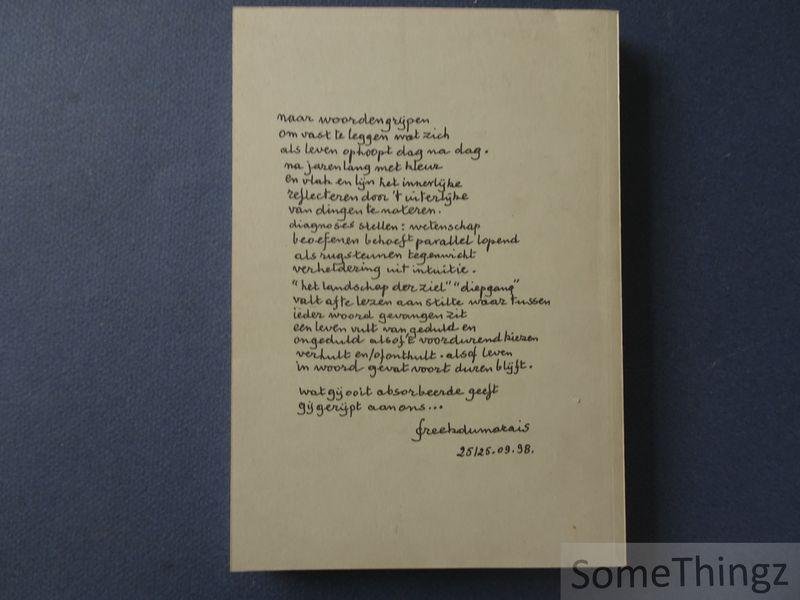 naar woordengrijpen
om vast te leggen wat zich
als leven ophoopt dag na dag.
na jarenlang met kleur
en vlak en lijn het innerlijke
reflecteren door 't uiterlijke
van dingen te noteren.
diagnoses stellen: wetenschap
beoefenen behoeft parallel lopend
als rugsteunen tegenwicht
verheldering uit intuitie.
"het landschap der ziel" "diepgang"
valt af te lezen aan stilte waar tussen
ieder woord gevangen zit
een leven vult van geduld en
ongeduld alsof 't voordurend kiezen
verhult en/of onthult. alsof leven
in woord gevat voort duren blijft.
wat gij ooit absorbeerde geeft
gij gerijpt aan ons...
freekdumarais
25/25.09.98.
SomeThingz